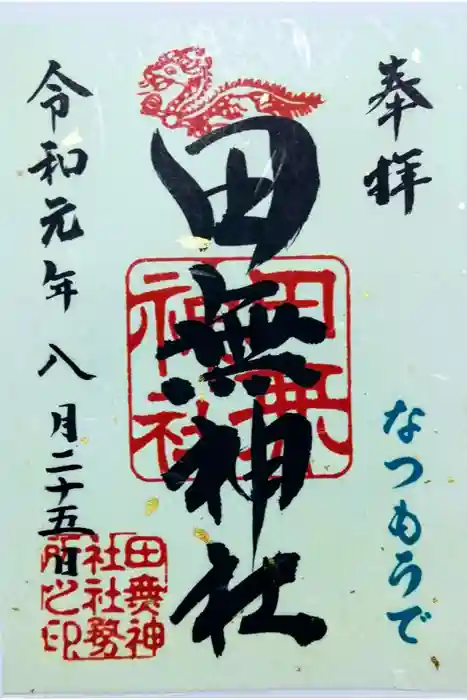 奉拝
なつもうで
田無神社
田無神社
令和元年八月二十五日
田無神
社社務
所之印